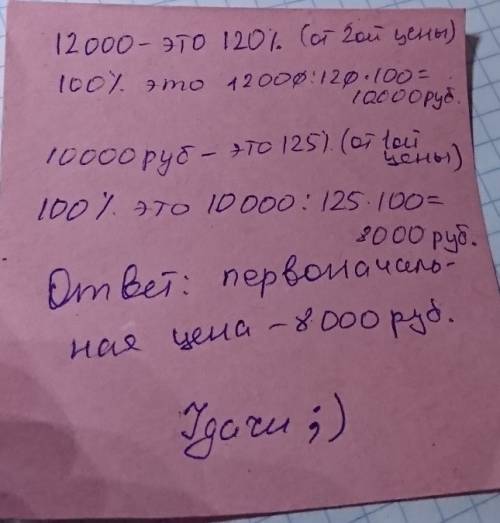 12000 – это 120%. (от 2ой цены)
100%. это 12000:120·100=
10000 руб.
10000 руб – это 125%. (от 1ой
цены)
100%. это 10000:125·100=
8000 руб.
Ответ: первоначаль-
ная цена – 8000 руб.
Удачи ;)